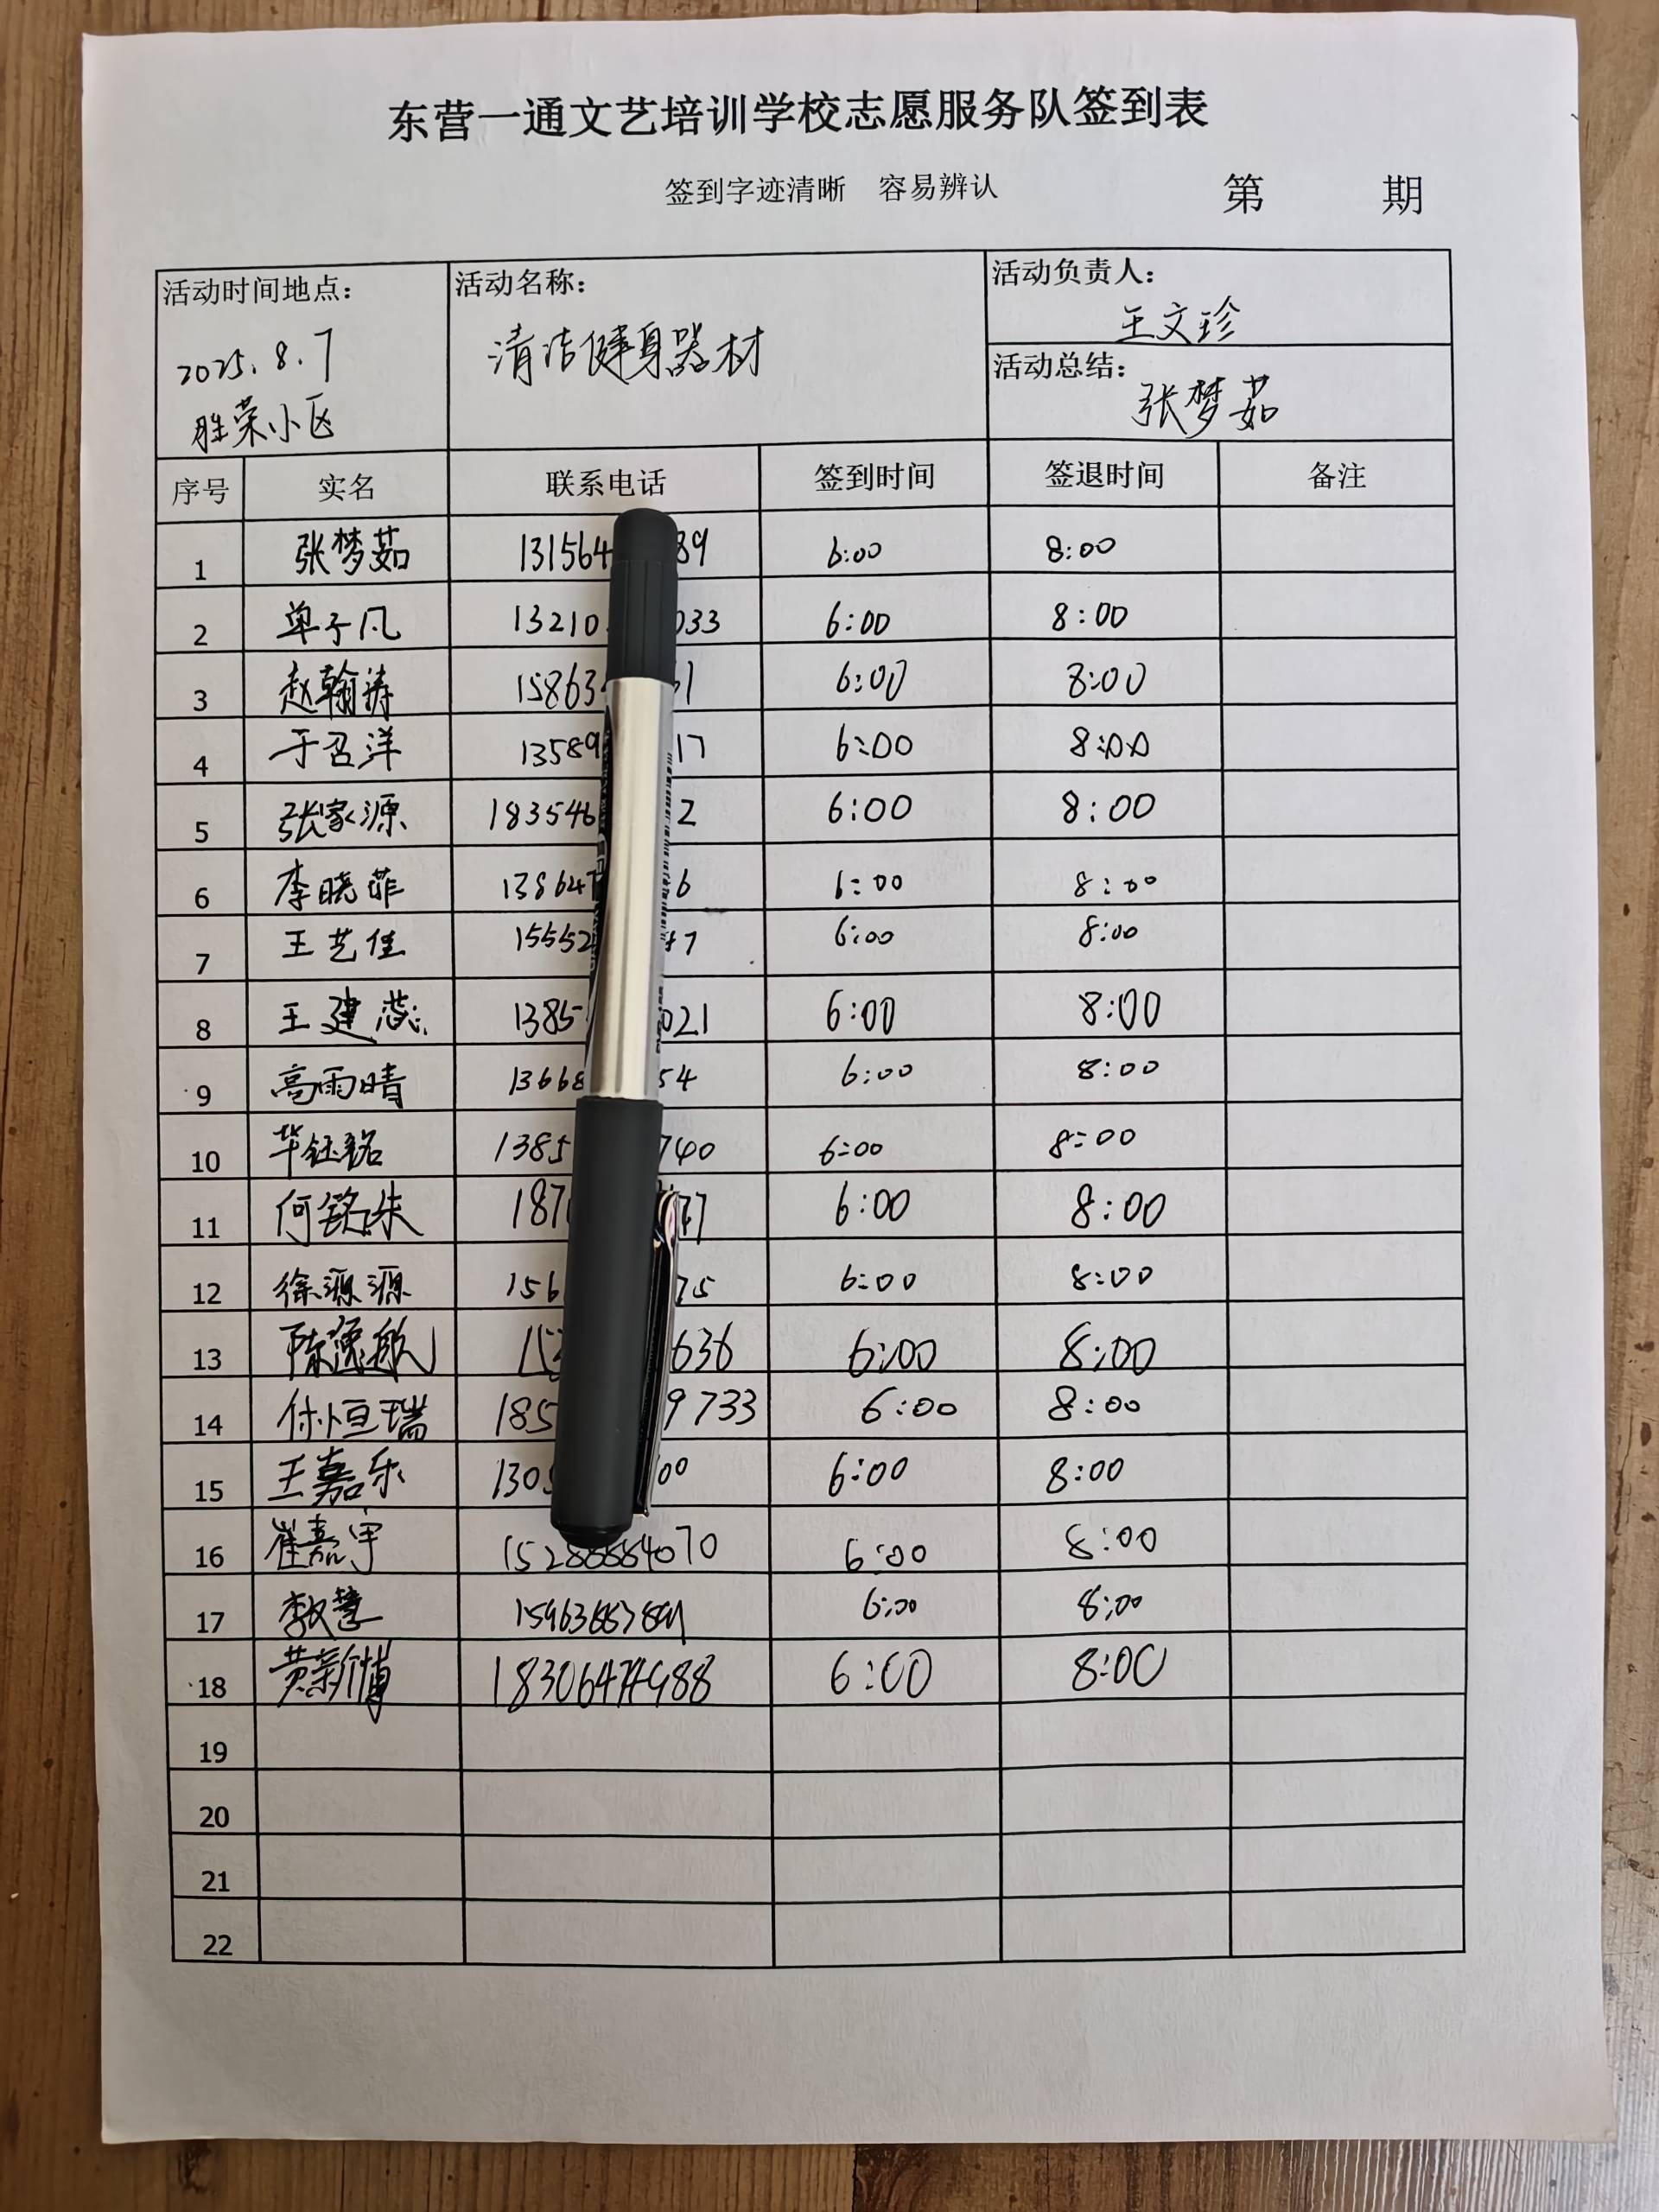 东营一通文艺培训学校志愿服务队签到表
签到字迹清晰 容易辨认 第 期
活动时间地点： 活动名称： 活动负责人：
2025.8.7 清洁健身器材 王文珍
胜荣小区 活动总结：
张梦茹
序号 实名 联系电话 签到时间 签退时间 备注
1 张梦茹 131564 89 6:00 8:00
2 单子凡 13210 033 6:00 8:00
3 赵翰涛 15863 1 6:00 8:00
4 于召洋 13589 17 6:00 8:00
5 张家源 183546 2 6:00 8:00
6 李晓菲 138647 6 6:00 8:00
7 王艺佳 15552 47 6:00 8:00
8 王建蕊 1385 021 6:00 8:00
9 高雨晴 13668 54 6:00 8:00
10 华钰铭 1385 740 6:00 8:00
11 何铭朱 187 47 6:00 8:00
12 徐源源 156 75 6:00 8:00
13 陈 航 15 636 6:00 8:00
14 付恒瑞 185 9733 6:00 8:00
15 王嘉乐 130 00 6:00 8:00
16 崔嘉宇 15288884070 6:00 8:00
17 李 慧 6:00 8:00
18 黄新博 6:00 8:00
19
20
21
22